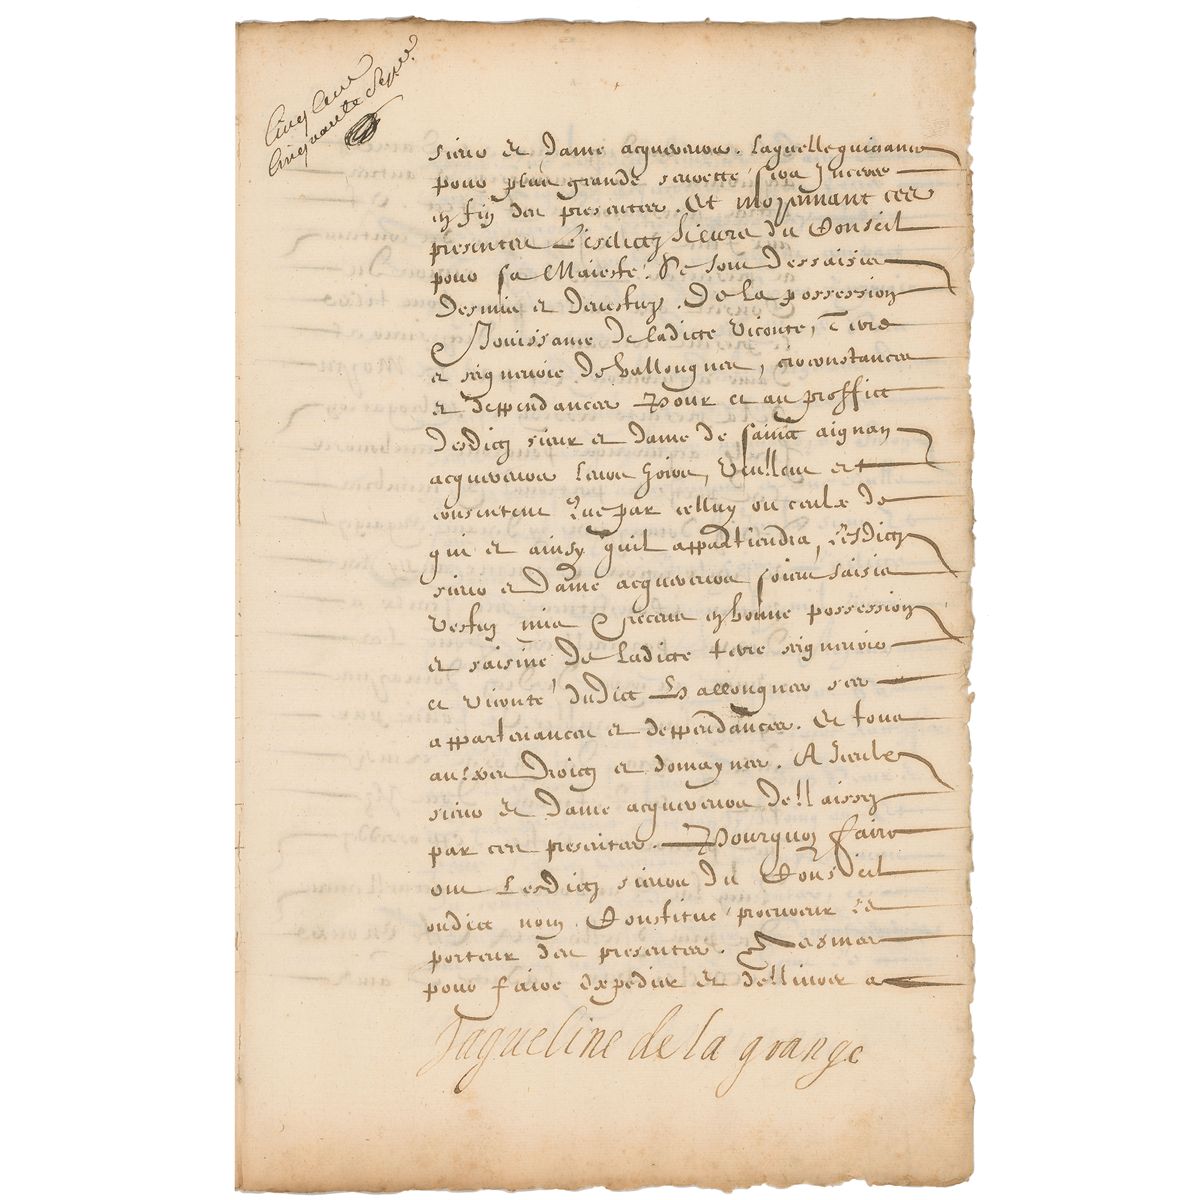 Cinq cens
Cinquante Sept
sieur et dame acquereurs. Laquelle quictance
pour plus grande seurette sera Inseree
en fin des presentes. Et moyennant ces
presentes Lesdictz sieurs du Conseil
pour sa Maieste. Se sont dessaisis
desmis et devestuz. De la possession
Jouissance de ladicte viconté, Terre
et seigneurie de Vallongnes, circonstances
et deppendances Pour et au proffict
desdictz sieur et dame de sainct aignan
acquereurs leurs hoirs, Veullent et
consentent Que par celluy ou ceulx de
qui et ainsy quil appartiendra, Lesdictz
sieur et dame acquereurs soient saisis
vestuz mis et receuz en bonne possession
et saisine de ladicte terre seigneurie
et viconté dudict Vallongnes ses
appartenances et deppendances. Et tous
aultres droictz et domaynes. A Iceulx
sieur et dame acquereurs dellaissez
par ces presentes. Pourquoy faire
ont Lesdictz sieurs du Conseil
oudict nom Constitué procureur le
porteur des presentes. Mesmes
pour faire expedier et dellivrer a
Jaqueline de la grange